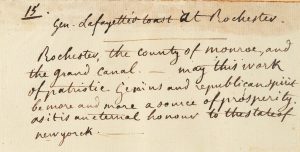 15
Gen. Lafayette's toast at Rochester.
Rochester, the county of monroe, and
the grand canal. — may this work
of patriotic Genius and republican spirit
be more and more a source of prosperity.
as it is an eternal honour to the state of
newyorck.